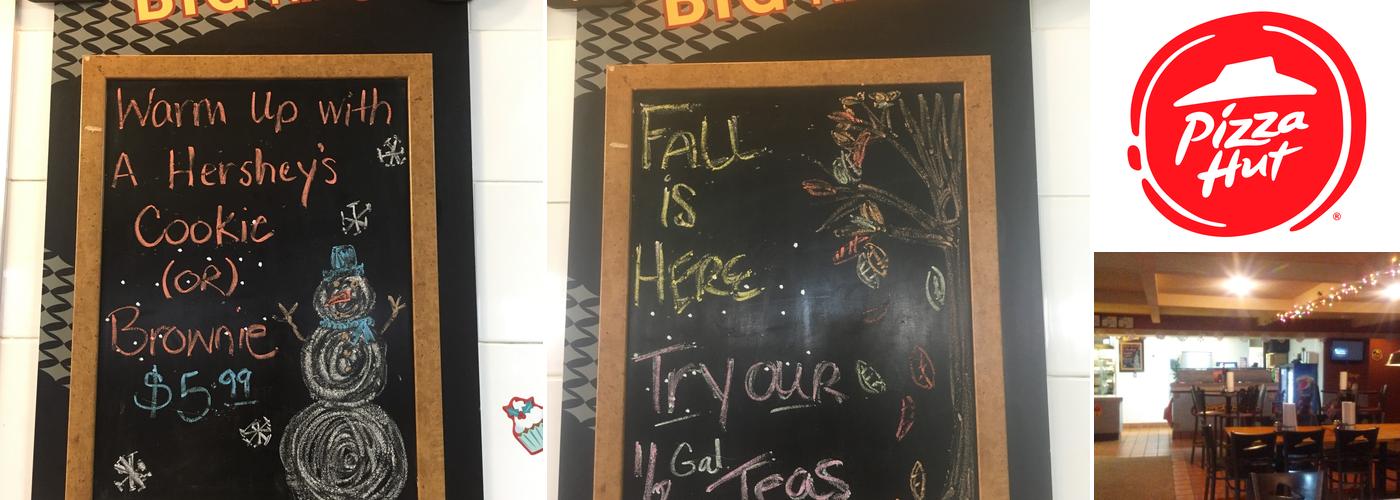 BIG
Warm Up with
A Hershey's
Cookie
(OR)
Brownie
$5.99
BIG
FALL
is
HERE
Try our
1/2 Gal Teas
Pizza
Hut
®